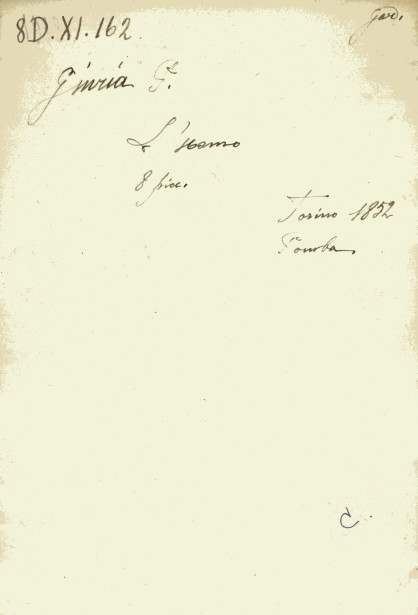 8D.XI.162
Gard.
Giuria P.
L'uomo
8 picc.
Torino 1852
Pomba
C.